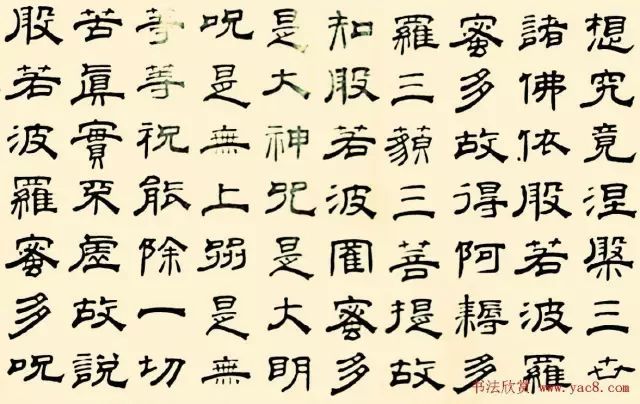 想究竟涅槃三世
諸佛依般若波羅
蜜多故得阿耨多
羅三藐三菩提故
知般若波蜜多
是大神咒是大明
呪是無上是無
等等祝能除一切
苦眞實不虛故說
般若波羅蜜多呪
书法欣赏 www.yac8.com